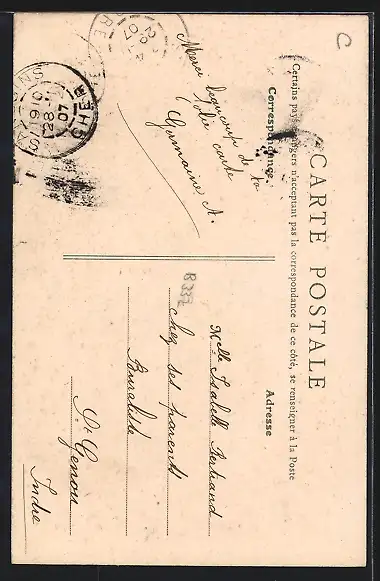 CARTE POSTALE
Certains pays étrangers n'acceptant pas la correspondance de ce côté, se renseigner à la Poste
Correspondance
Adresse
Merci beaucoup de ta
jolie carte
Germaine A.
Mlle Isabelle Bertrand
chez ses parents
Buraliste
St Genou
Indre
B332
CHER
28
07
C